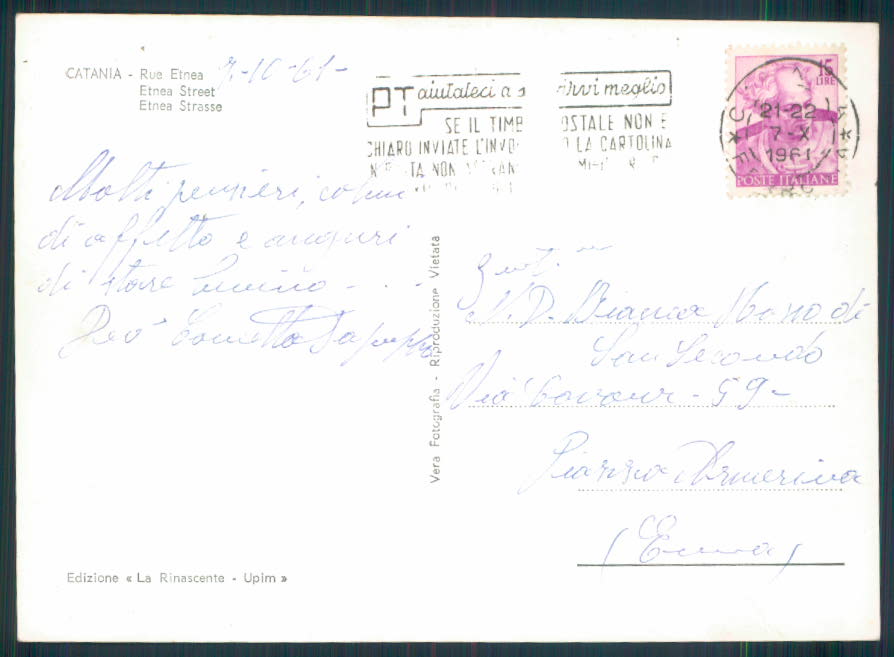 CATANIA - Rue Etnea
Etnea Street
Etnea Strasse
7-10-61-
PT aiutateci a s rvi meglio
SE IL TIMB OSTALE NON E
CHIARO INVIATE L'INVO O LA CARTOLINA
NON
15
LIRE
21-22
7-X
1961
POSTE ITALIANE
Molti pensieri, colmi
di affetto e auguri
di stare benino - . . -
Gent.
N. D. Bianca di
San Secondo
Via Cavour - 59-
Piazza Armerina
(Enna)
Vera Fotografia - Riproduzione Vietata
Edizione « La Rinascente - Upim »